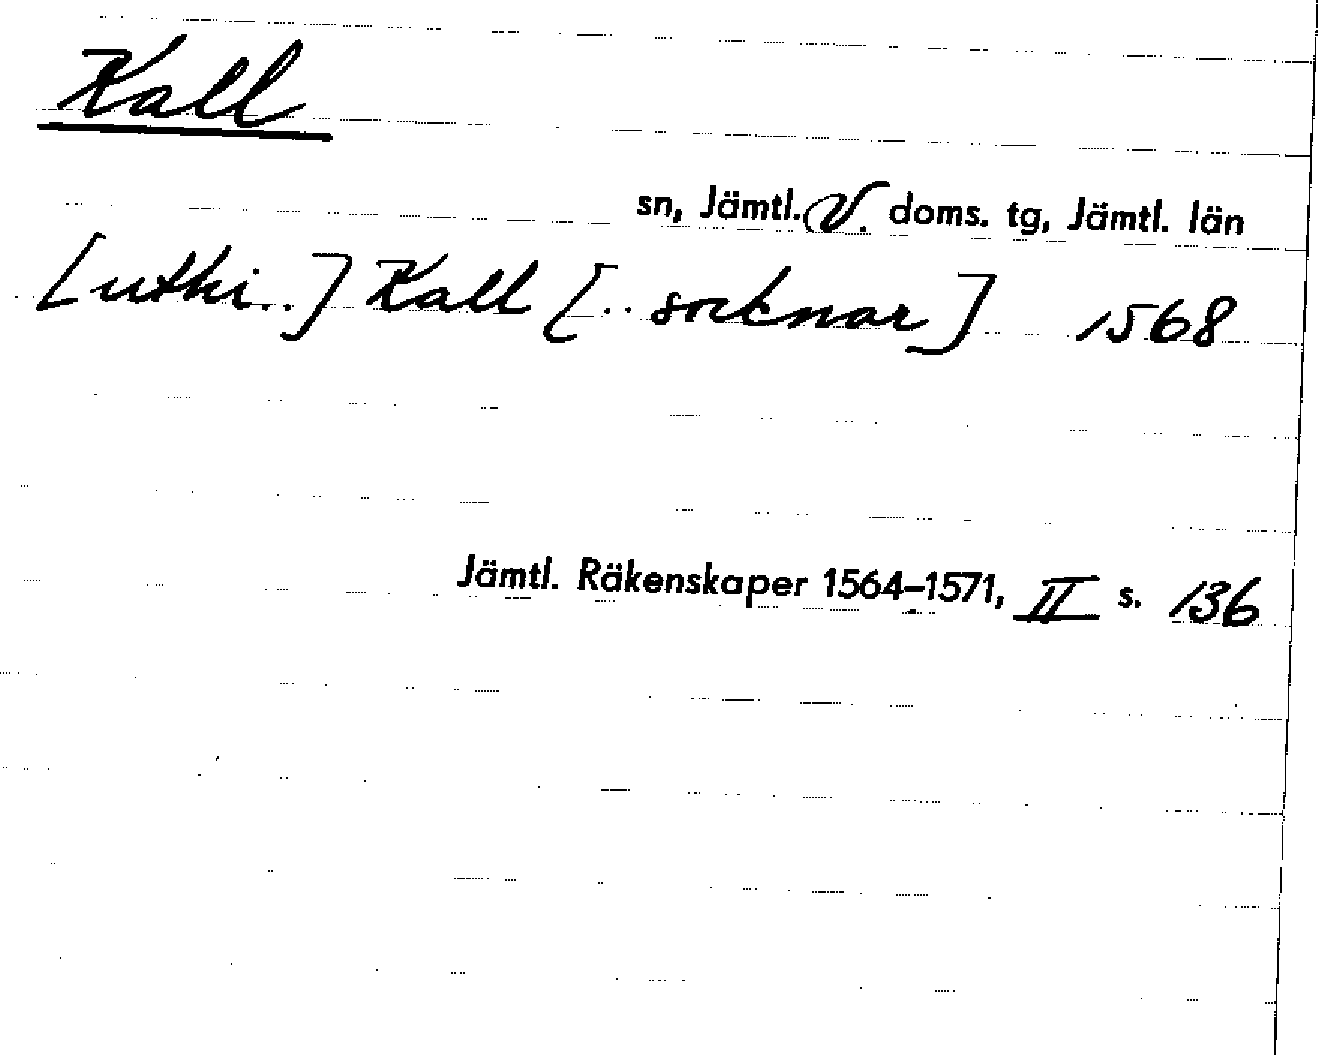 Kall
sn, Jämtl. V. doms. tg, Jämtl. län
[uthi..] Kall [.. socknar] 1568
Jämtl. Räkenskaper 1564–1571, II s. 136